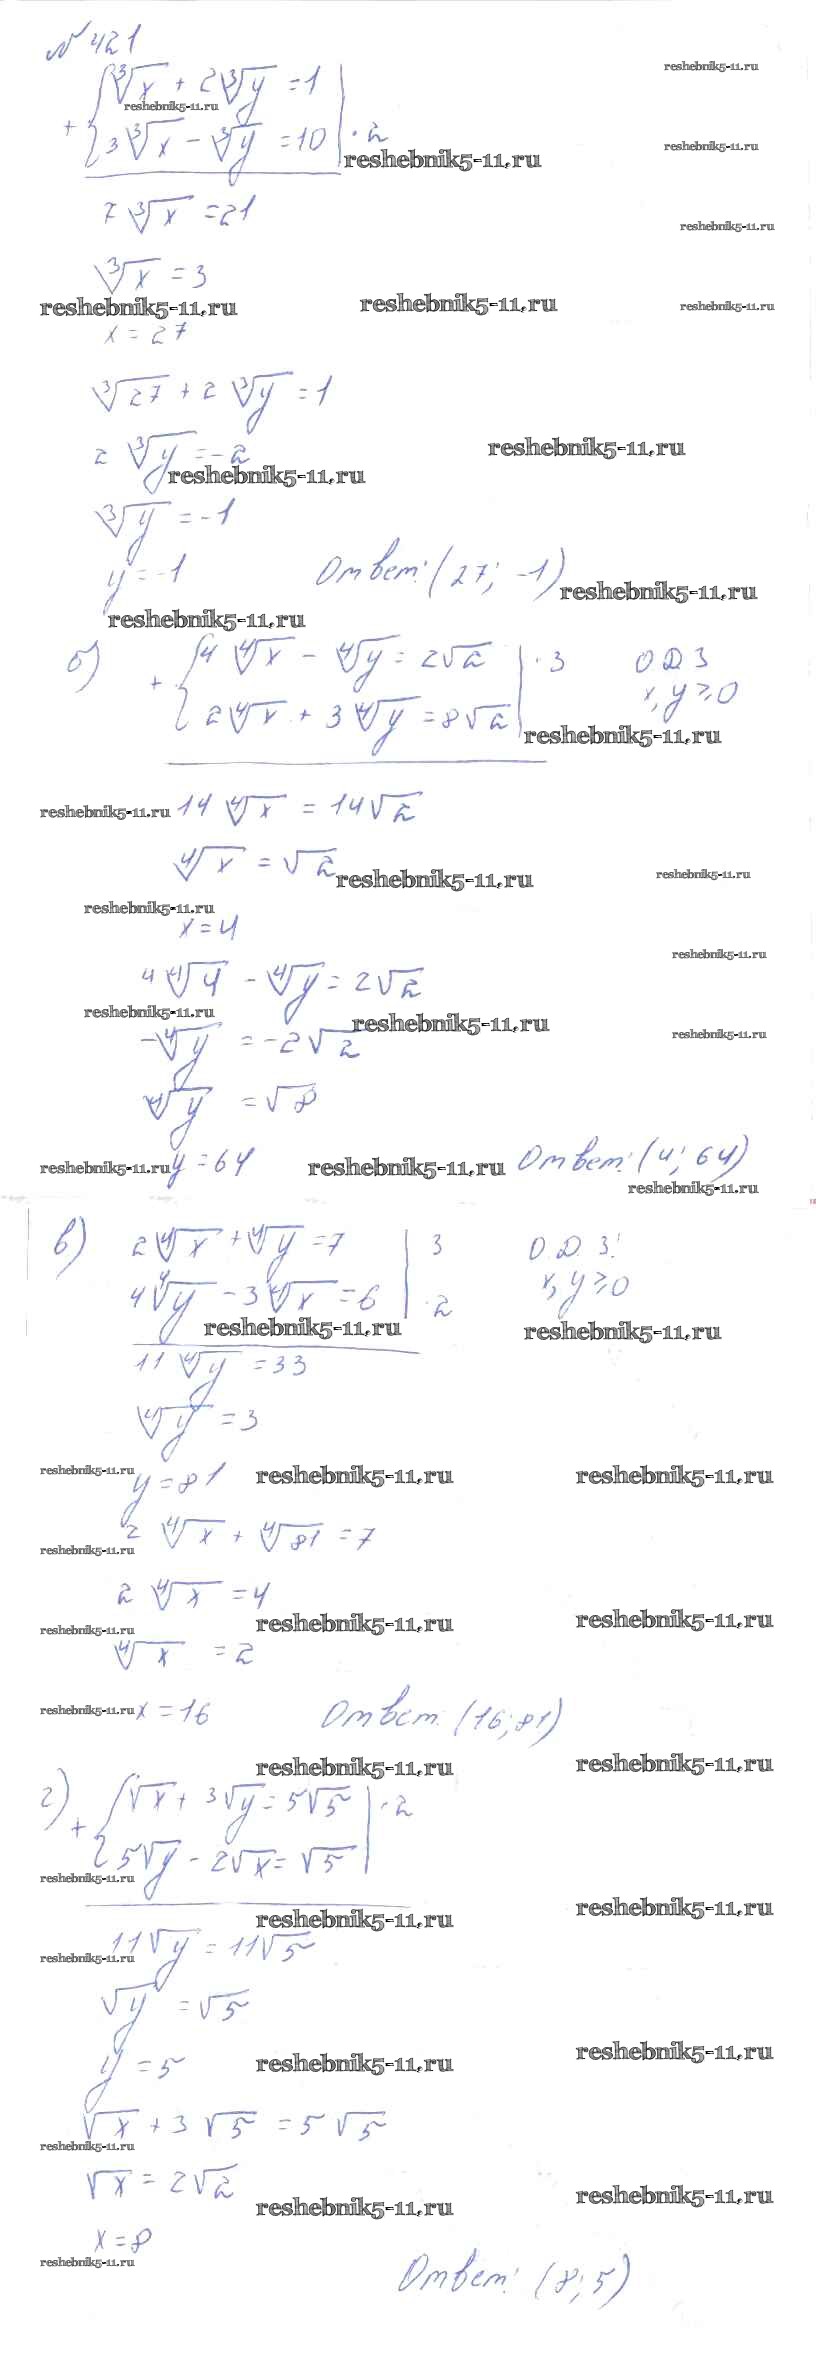 № 421
reshebnik5-11.ru
+ { ∛x + 2∛y = 1
reshebnik5-11.ru
3∛x − ∛y = 10 | · 2
reshebnik5-11.ru
reshebnik5-11.ru
7∛x = 21
reshebnik5-11.ru
∛x = 3
reshebnik5-11.ru reshebnik5-11.ru reshebnik5-11.ru
x = 27
∛27 + 2∛y = 1
2∛y = −2
reshebnik5-11.ru
reshebnik5-11.ru
∛y = −1
y = −1 Ответ: (27; −1)
reshebnik5-11.ru
reshebnik5-11.ru
б) + { 4∜x − ∜y = 2√2 | · 3 ОДЗ
2∜x + 3∜y = 8√2 x, y ≥ 0
reshebnik5-11.ru
reshebnik5-11.ru 14∜x = 14√2
∜x = √2
reshebnik5-11.ru reshebnik5-11.ru
reshebnik5-11.ru
x = 4
reshebnik5-11.ru
4∜4 − ∜y = 2√2
reshebnik5-11.ru reshebnik5-11.ru
reshebnik5-11.ru
−∜y = −2√2
∜y = √8
reshebnik5-11.ru y = 64 reshebnik5-11.ru Ответ: (4; 64)
reshebnik5-11.ru
в) 2∜x + ∜y = 7 | 3 О.Д.З:
4∜y − 3∜x = 6 | · 2 x, y ≥ 0
reshebnik5-11.ru reshebnik5-11.ru
11∜y = 33
∜y = 3
reshebnik5-11.ru reshebnik5-11.ru reshebnik5-11.ru
y = 81
2∜x + ∜81 = 7
reshebnik5-11.ru
2∜x = 4
reshebnik5-11.ru reshebnik5-11.ru reshebnik5-11.ru
∜x = 2
reshebnik5-11.ru x = 16 Ответ: (16; 81)
reshebnik5-11.ru reshebnik5-11.ru
г) + { √x + 3√y = 5√5 | · 2
5√y − 2√x = √5
reshebnik5-11.ru
reshebnik5-11.ru reshebnik5-11.ru
11√y = 11√5
reshebnik5-11.ru
√y = √5
y = 5 reshebnik5-11.ru reshebnik5-11.ru
√x + 3√5 = 5√5
reshebnik5-11.ru
√x = 2√2
reshebnik5-11.ru reshebnik5-11.ru
x = 8
reshebnik5-11.ru
Ответ: (8; 5)